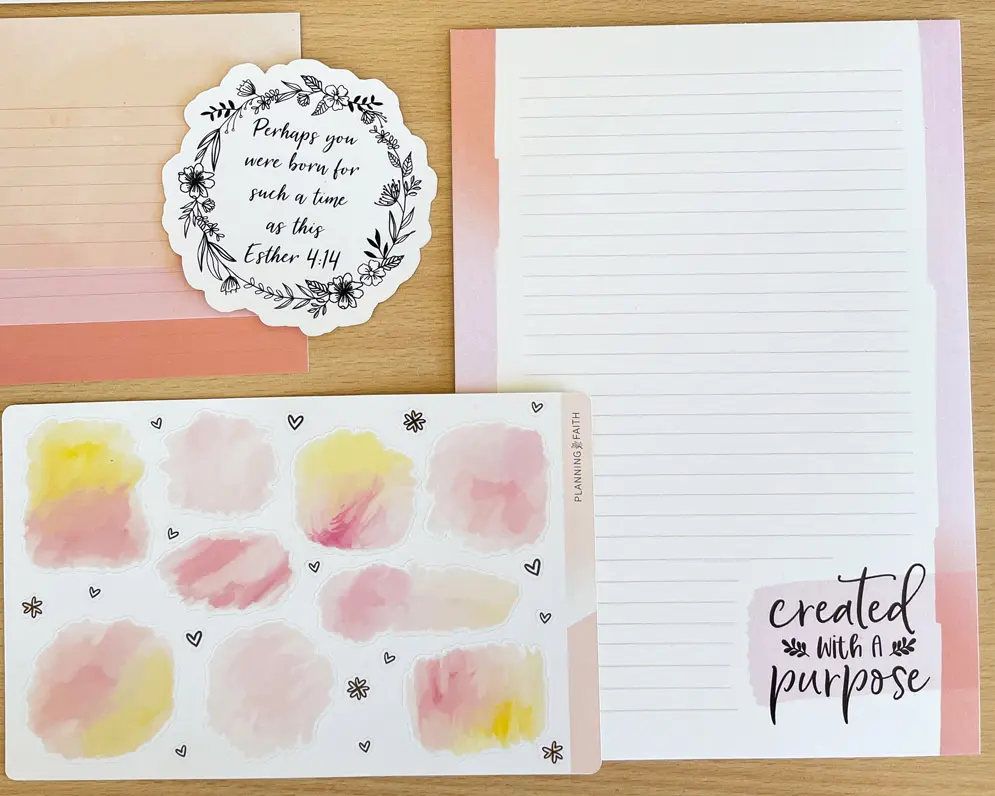 Perhaps you
were born for
such a time
as this
Esther 4:14
PLANNING FAITH
created
with A
purpose